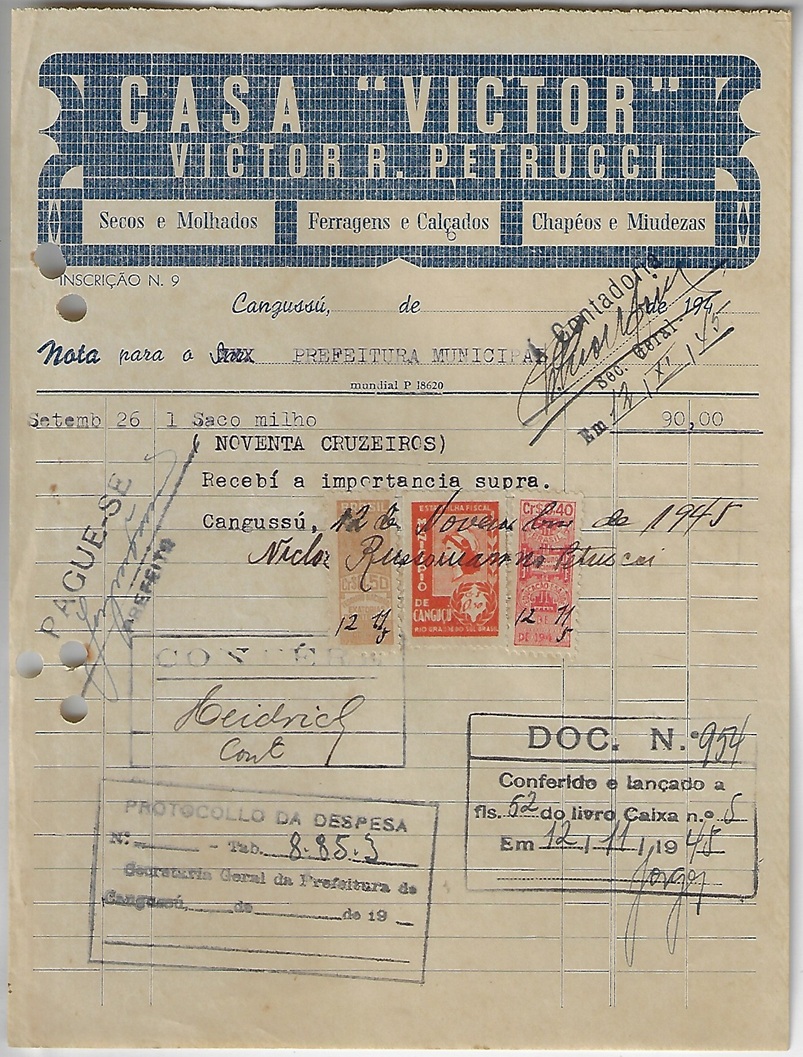 CASA "VICTOR"
VICTOR R. PETRUCCI
Secos e Molhados
Ferragens e Calçados
Chapéos e Miudezas
INSCRIÇÃO N. 9
Cangussú, de de 194
Contadoria
Sec. Geral
Em 12 / XI / 45
Nota para o PREFEITURA MUNICIPAL
mundial P 18620
Setemb 26 1 Saco milho 90,00
( NOVENTA CRUZEIROS)
Recebí a importancia supra.
Cangussú, 12 de Novembro de 1945
Petrucci
PAGUE-SE
PREFEITO
ESTAMPILHA FISCAL
MUNICIPIO
DE
CANGUÇU
RIO GRANDE DO SUL BRASIL
Cr$ 0,40
12 11
12 11
CONFÉRE
Heidrich
Cont
DOC. N.º 954
Conferido e lançado a
fls. 52 do livro Caixa n.º 5
Em 12 / 11 / 1945
Jorge
PROTOCOLLO DA DESPESA
N.º - Tab. 8.85.3
Secretaria Geral da Prefeitura de
Cangussú, de de 19